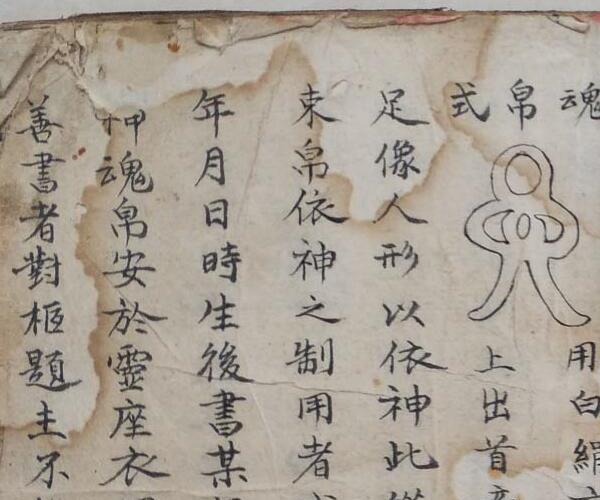 魂帛式
用白絹
上出首
足像人形以依神此
束帛依神之制用者
年月日時生後書某
神魂帛安於靈座衣
善書者對柩題主不